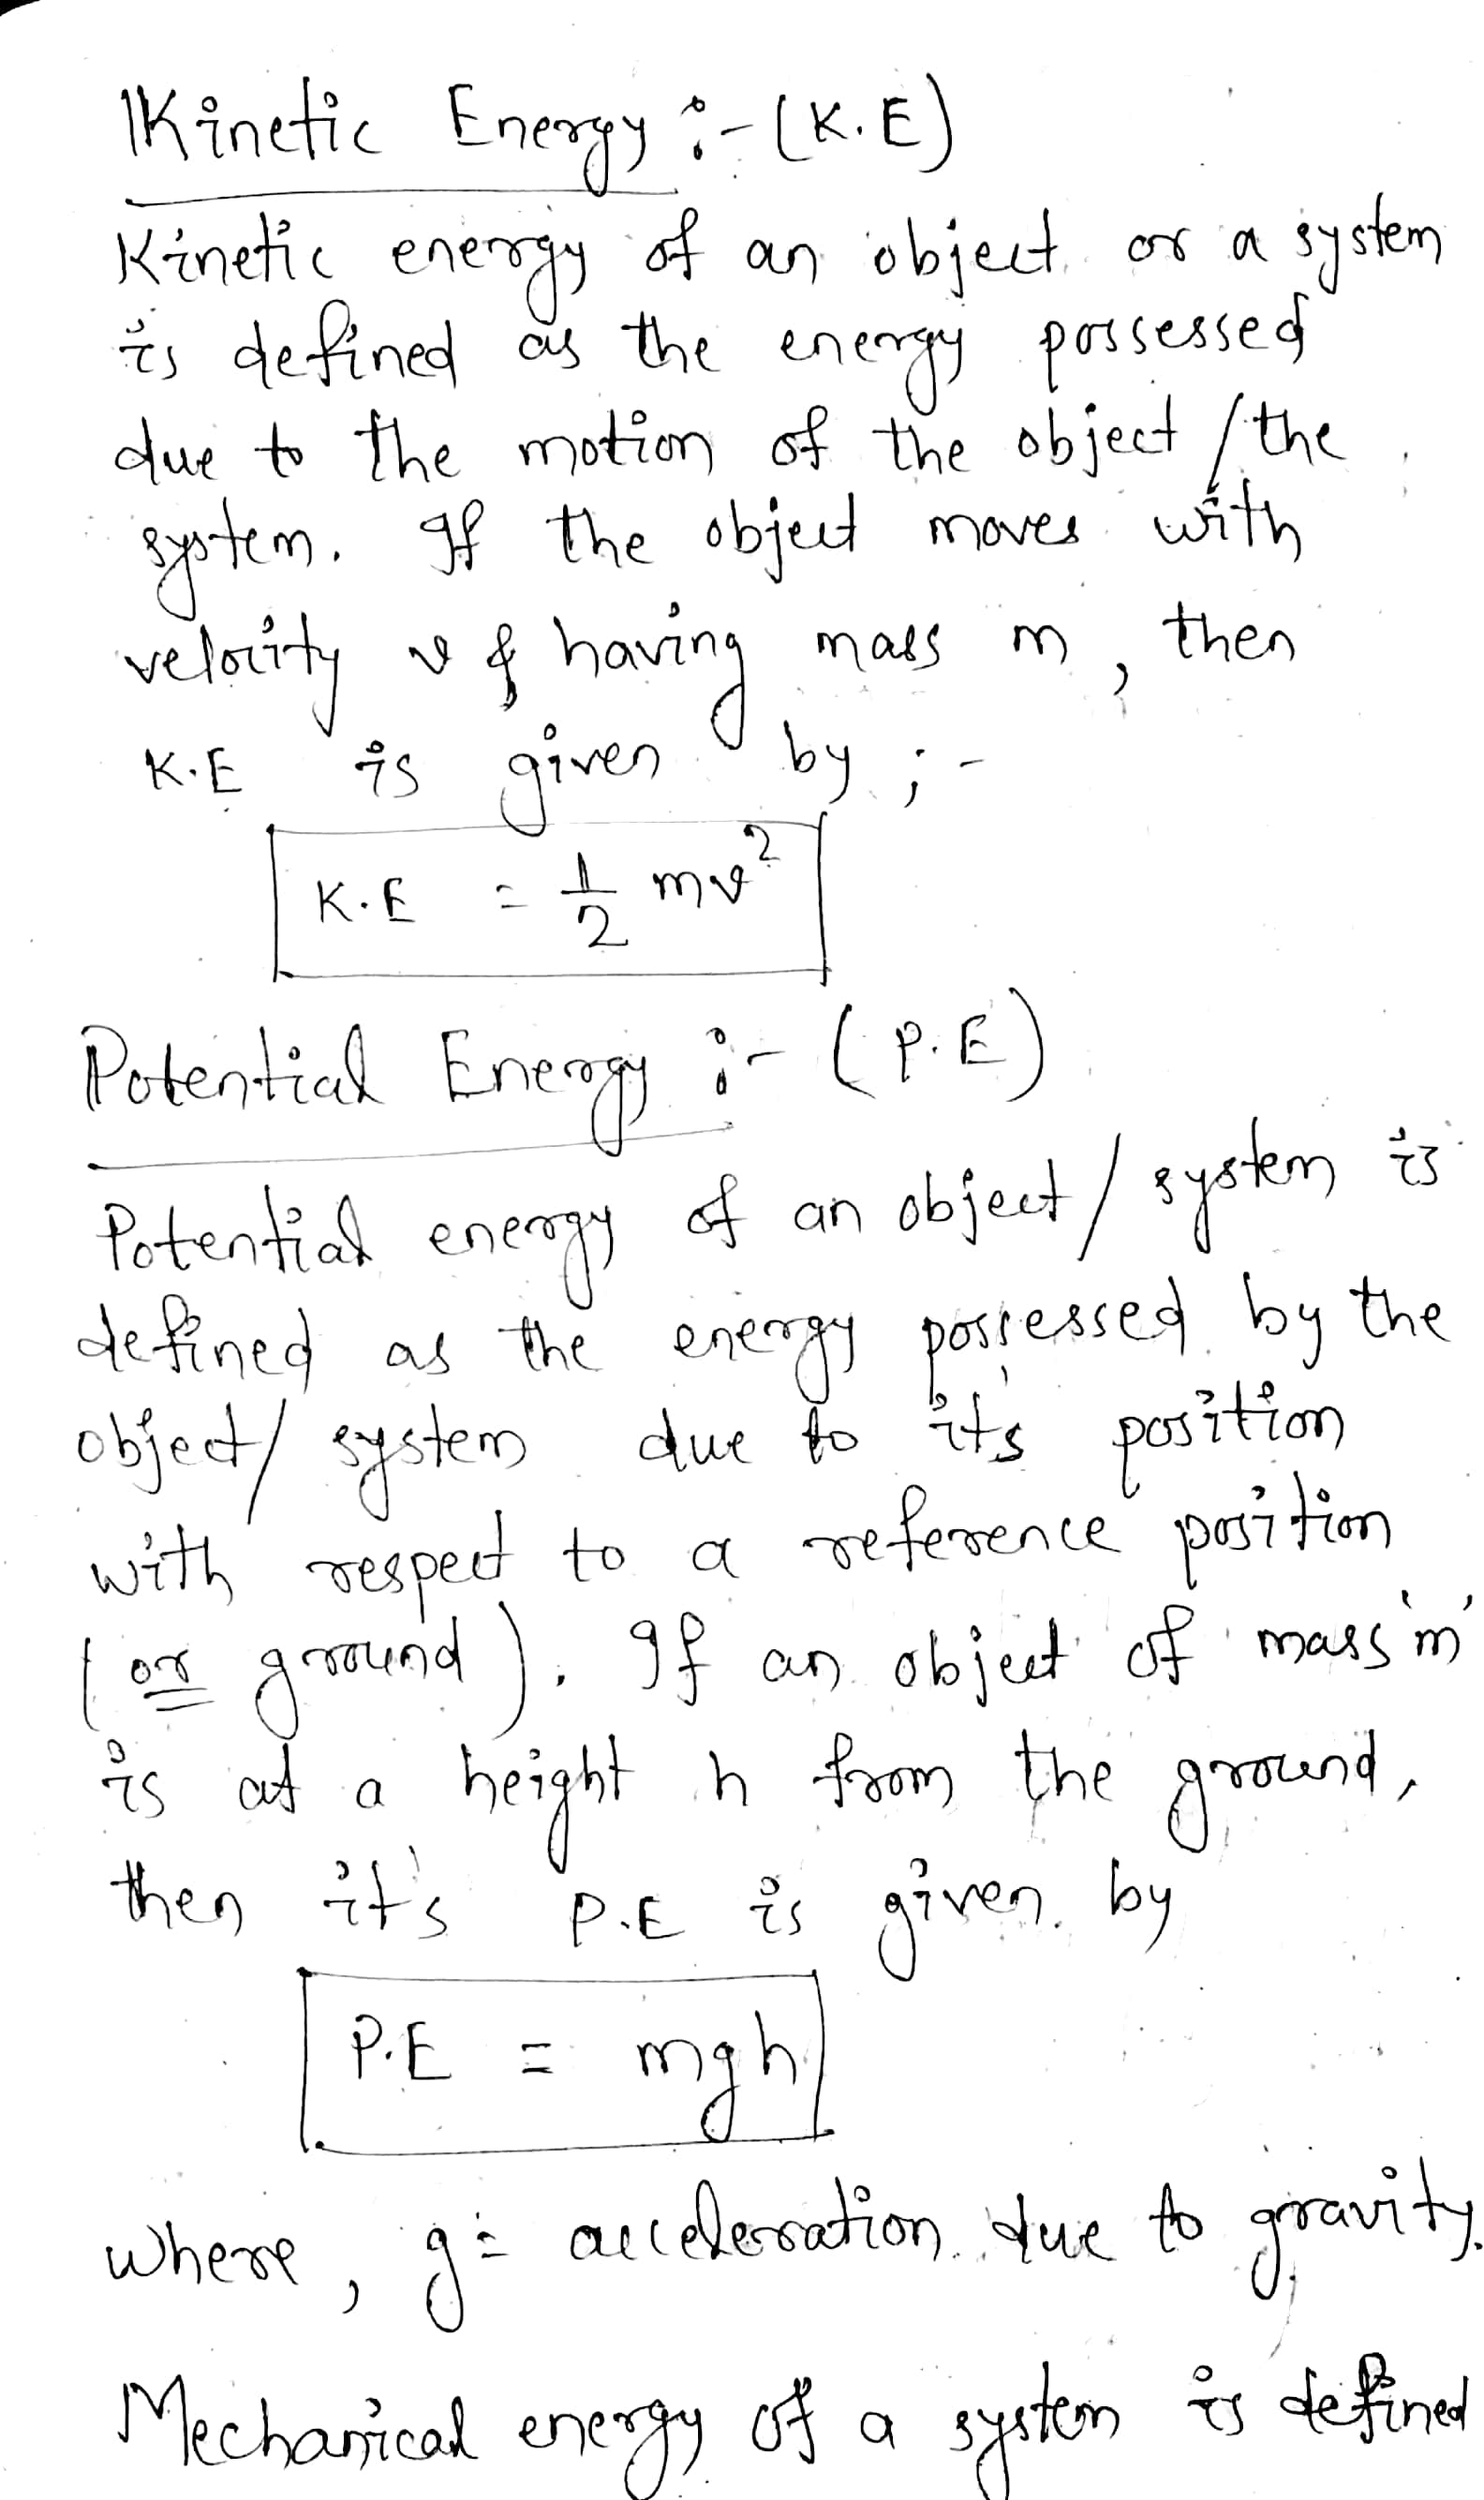 Kinetic Energy :- (K.E)
Kinetic energy of an object or a system
is defined as the energy possessed
due to the motion of the object / the
system. If the object moves with
velocity v & having mass m , then
K.E is given by ; -
K.E = 1/2 mv²
Potential Energy :- ( P.E )
Potential energy of an object / system is
defined as the energy possessed by the
object / system due to it's position
with respect to a reference position
( or ground ). If an object of mass 'm'
is at a height h from the ground,
then it's P.E is given by
P.E = mgh
where , g = acceleration due to gravity.
Mechanical energy of a system is defined